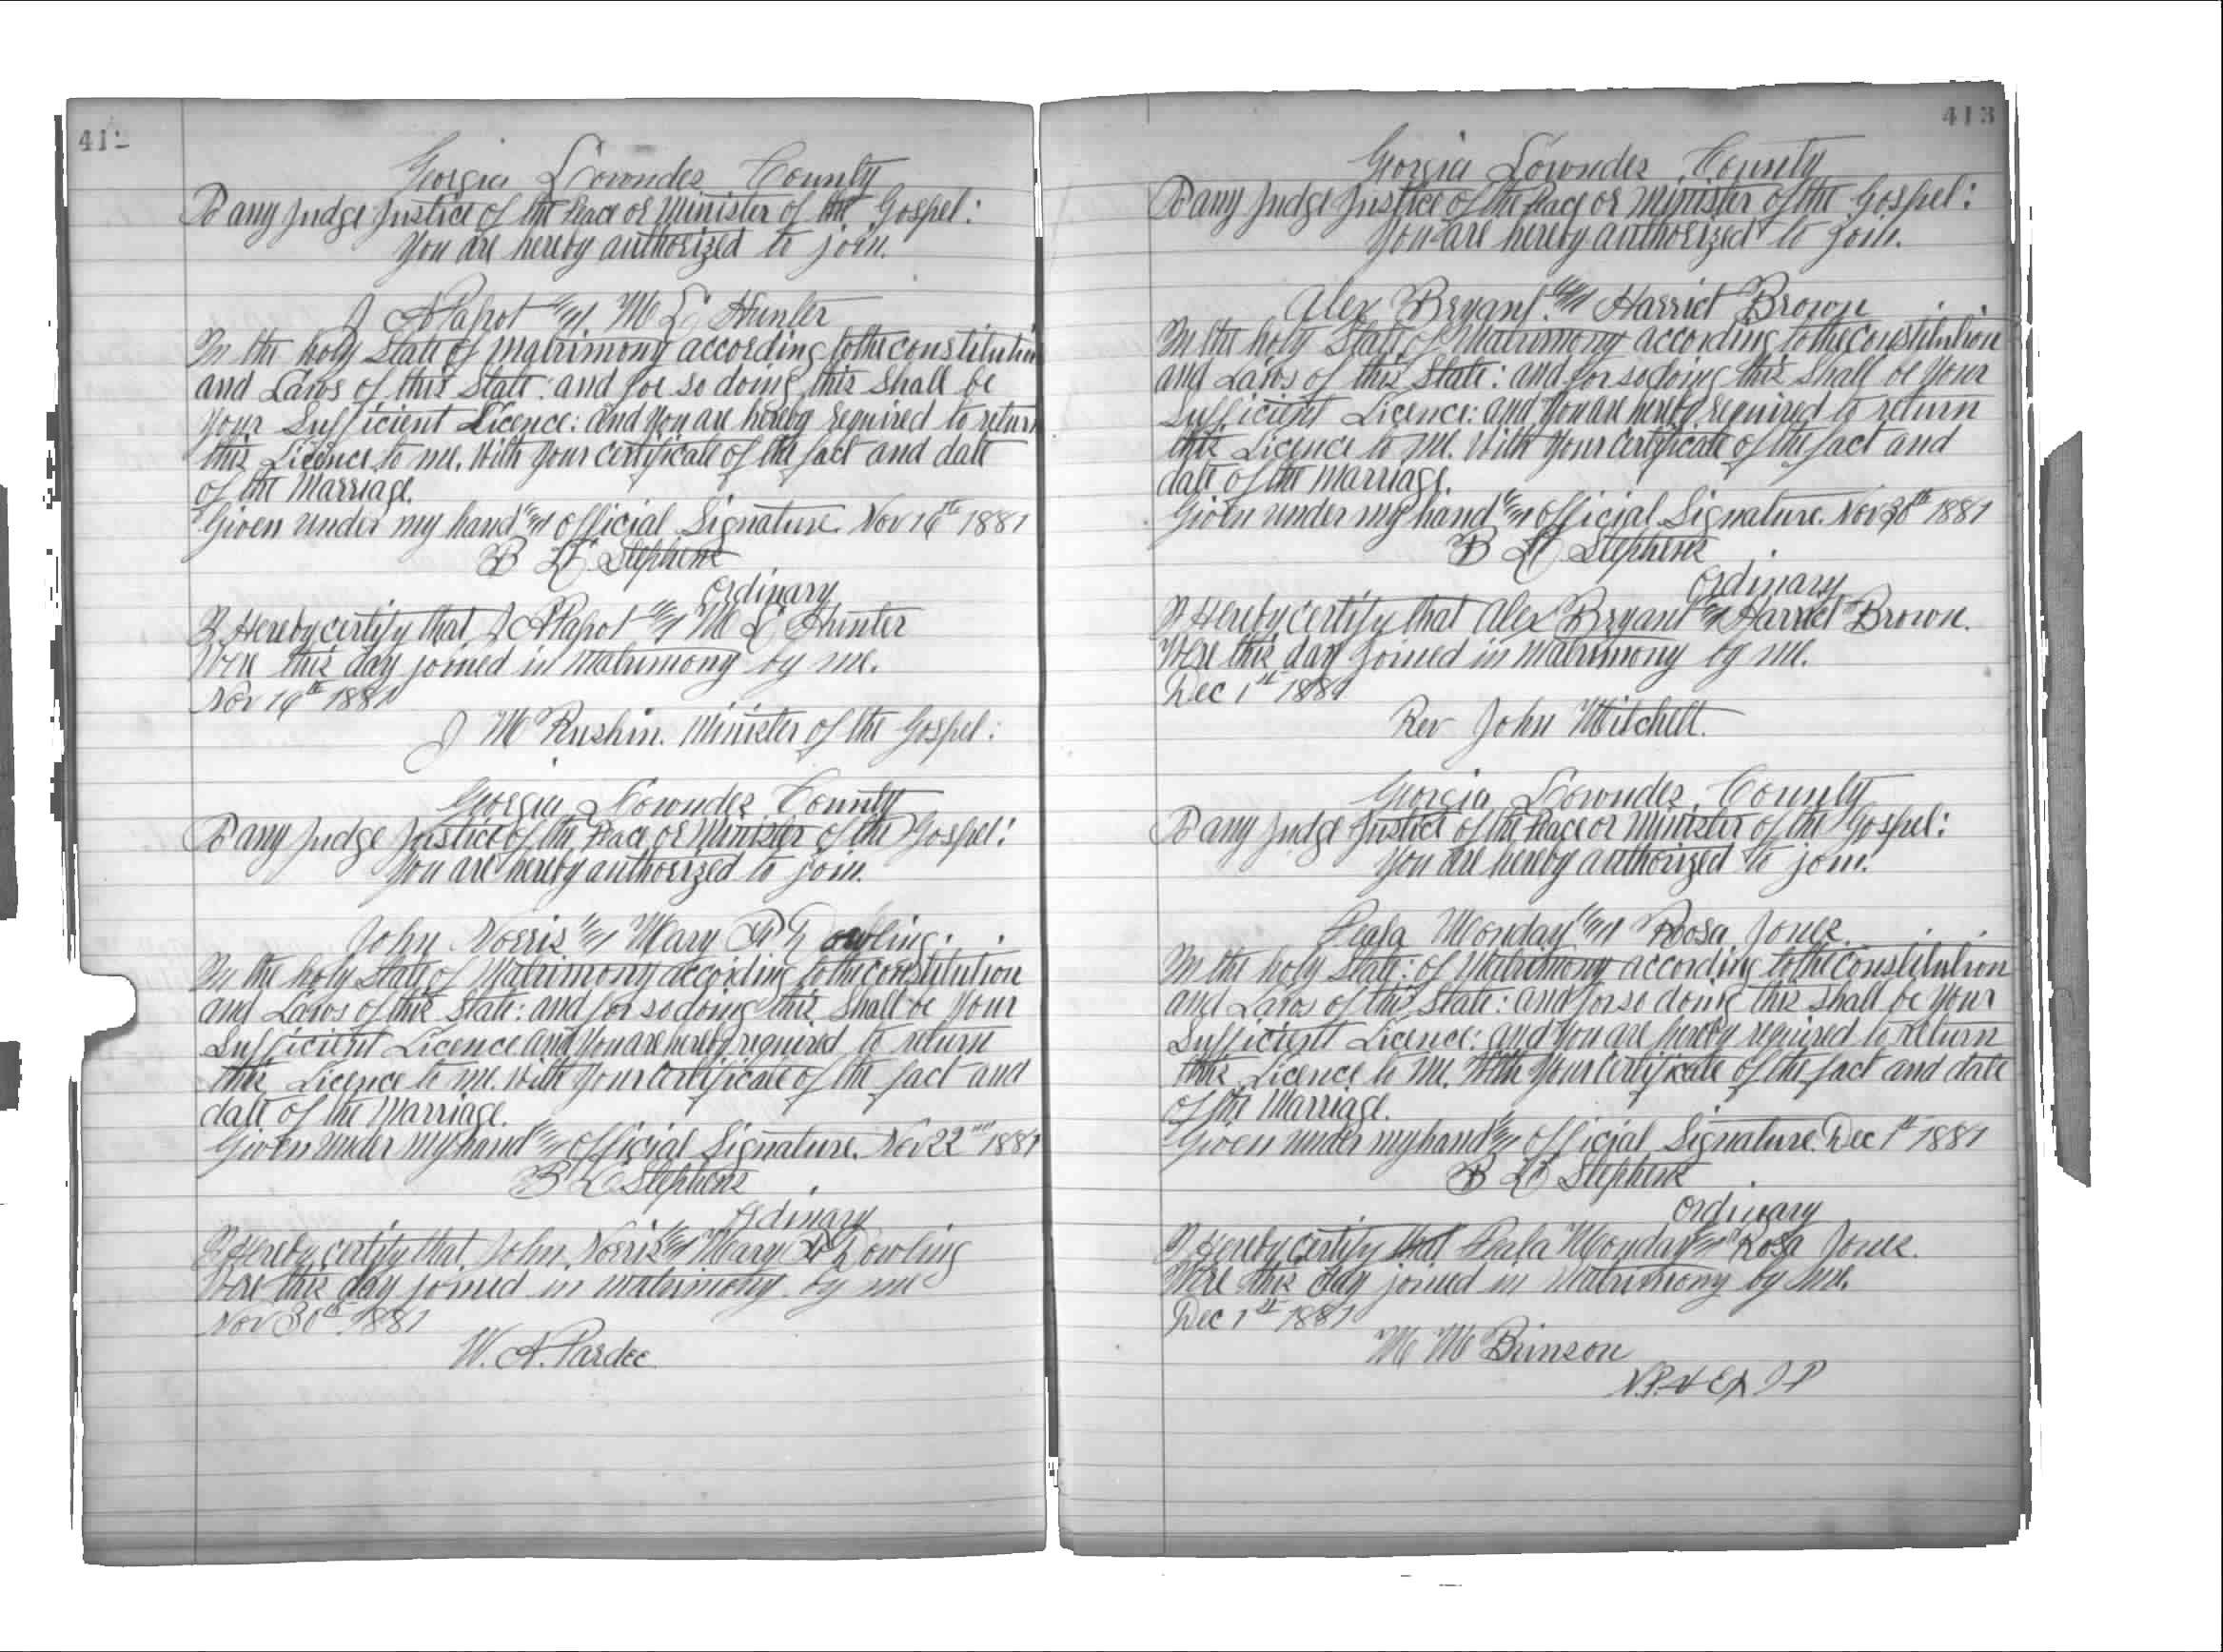 412
Georgia Lowndes County
To any Judge Justice of the Peace or Minister of the Gospel:
You are hereby authorized to join.
J A Papot and M L Hunter
In the holy State of Matrimony according to the constitution
and Laws of this State: and for so doing this Shall be
your Sufficient Licence: and you are hereby required to return
this Licence to me. With your certificate of the fact and date
of the Marriage.
Given under my hand and official Signature. Nov 16th 1881
B L Stephens
Ordinary
I Hereby certify that J A Papot and M L Hunter
Were this day joined in Matrimony by me.
Nov 16th 1881
J M Rushin. Minister of the Gospel:
Georgia Lowndes County
To any Judge Justice of the Peace or Minister of the Gospel:
You are hereby authorized to join.
John Norris and Mary Dowling.
In the holy State of Matrimony according to the constitution
and Laws of this State: and for so doing this Shall be Your
Sufficient Licence and You are hereby required to return
this Licence to me. With Your Certificate of the fact and
date of the Marriage.
Given under my hand and official Signature. Nov 22nd 1881
B L Stephens
Ordinary
I Hereby certify that John Norris and Mary Dowling
Were this day joined in matrimony by me
Nov 30th 1881
W. A. Pardee
413
Georgia Lowndes County
To any Judge Justice of the Peace or Minister of the Gospel:
You are hereby authorized to join.
Alex Bryant and Harriet Brown
In the holy State of Matrimony according to the constitution
and Laws of this State: and for so doing this Shall be Your
Sufficient Licence: and You are hereby required to return
this Licence to me. With Your Certificate of the fact and
date of the Marriage.
Given under my hand and official Signature. Nov 30th 1881
B L Stephens
Ordinary
I Hereby certify that Alex Bryant and Harriet Brown.
Were this day Joined in Matrimony by me.
Dec 1st 1881
Rev John Mitchell.
Georgia Lowndes County
To any Judge Justice of the Peace or Minister of the Gospel:
You are hereby authorized to join.
Monday and Rosa Jones.
In the holy State: of Matrimony according to the Constitution
and Laws of this State: and for so doing this Shall be Your
Sufficient Licence: and You are hereby required to return
this Licence to me. With Your Certificate of the fact and date
of the Marriage.
Given under my hand and official Signature. Dec 1st 1881
B L Stephens
Ordinary
I Hereby certify that Monday and Rosa Jones.
Were this day joined in Matrimony by me.
Dec 1st 1881
M M Brinson
N.P. & Ex J P